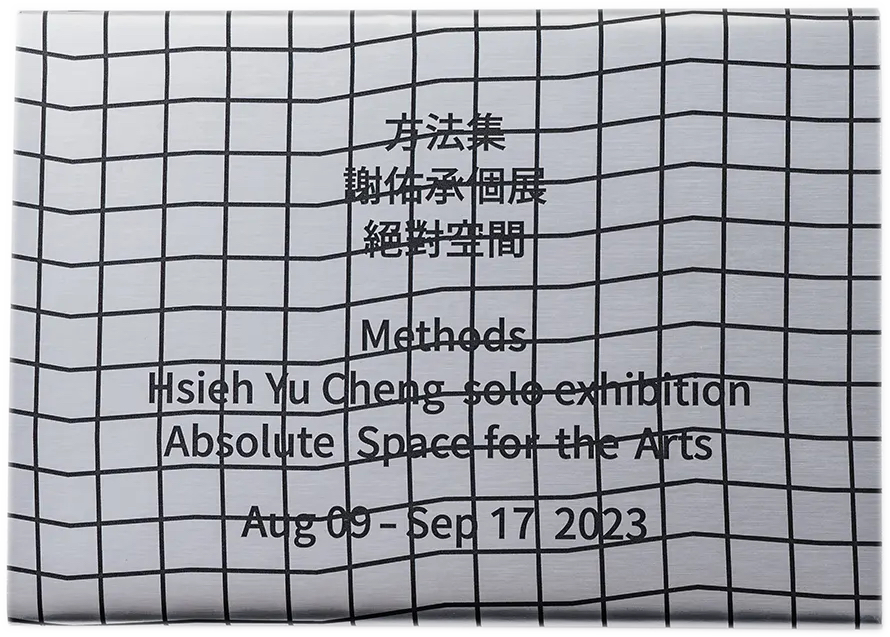 方法集
謝佑承個展
絕對空間
Methods
Hsieh Yu Cheng solo exhibition
Absolute Space for the Arts
Aug 09 – Sep 17 2023